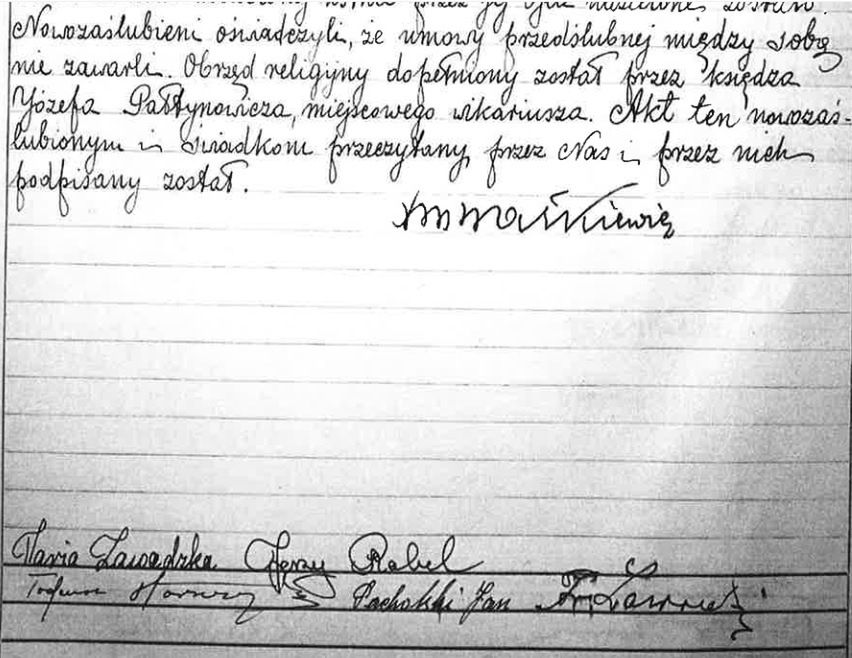 przez jej ojca
Nowozaślubieni oświadczyli, że umowy przedślubnej między sobą
nie zawarli. Obrzęd religijny dopełniony został przez księdza
Józefa Pałtynowicza, miejscowego wikariusza. Akt ten nowozaś-
lubionym i świadkom przeczytany, przez Nas i przez nich
podpisany został.
Marja Zawadzka Jerzy Rabel
Pacholski Jan